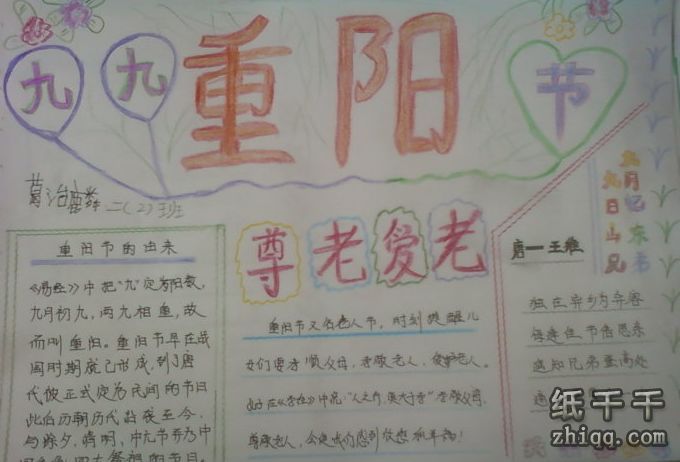 九九重阳节
二(2)班
重阳节的由来
《易经》中把"九"定为阳数,
九月初九,两九相重,故
而叫重阳。重阳节早在战
国时期就已形成,到了唐
代被正式定为民间的节日
此后历朝历代沿袭至今,
与除夕,清明,中九节
尊老爱老
重阳节又名老人节,时刻提醒儿
女们要孝顺父母,孝敬老人,爱护老人。
"孝敬父母,
尊敬老人,
九月九日忆山东兄弟
唐一王维
独在异乡为异客
每逢佳节倍思亲
遥知兄弟登高处
纸千千
zhiqq.com